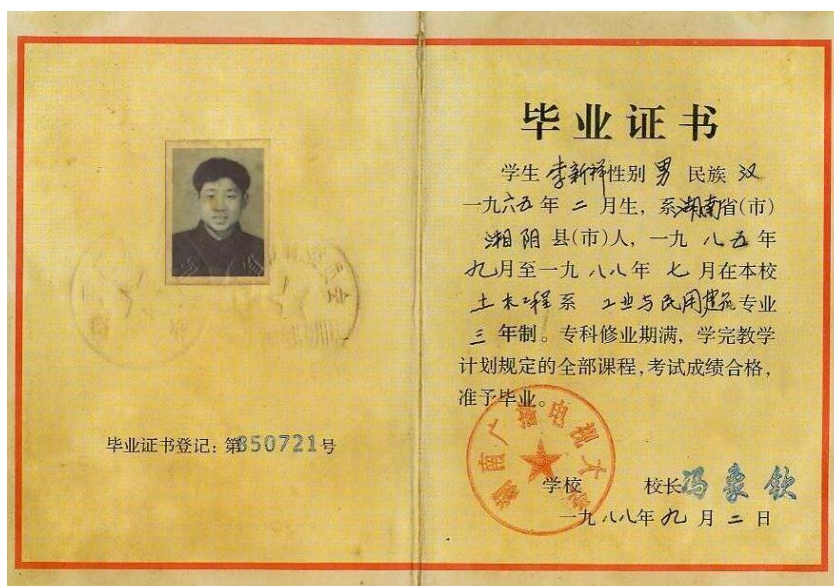 毕业证书登记：第850721号
毕业证书
学生 李新祥 性别 男 民族 汉
一九六五年 二 月生，系湖南省(市)
湘阴县(市)人，一九 八五 年
九月至一九 八八年 七 月在本校
土木工程系 工业与民用建筑专业
三 年制。专科修业期满，学完教学
计划规定的全部课程，考试成绩合格，
准予毕业。
湖南广播电视大学
学校 校长 冯象钦
一九八八年 九 月 二 日